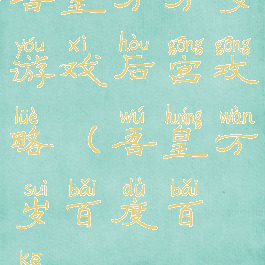 yóu xì hòu gōng gōng
游戏后宫攻
lüè wú huáng wàn
略(吾皇万
suì bǎi dù bǎi
岁百度百
kē